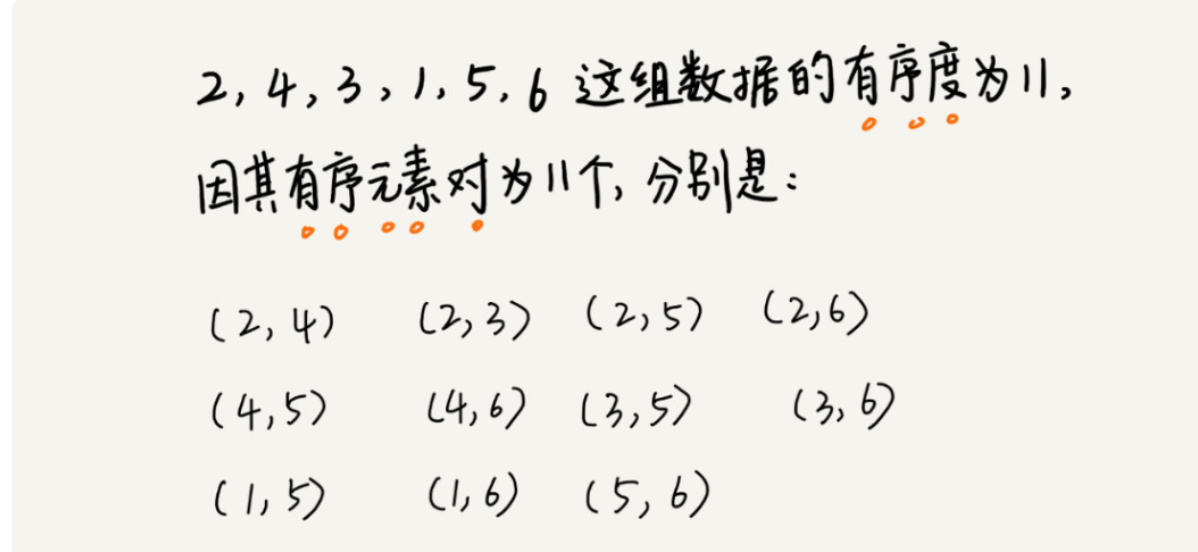 2, 4, 3, 1, 5, 6 这组数据的有序度为11,
因其有序元素对为11个, 分别是:
(2, 4) (2, 3) (2, 5) (2,6)
(4,5) (4,6) (3,5) (3, 6)
(1, 5) (1, 6) (5, 6)